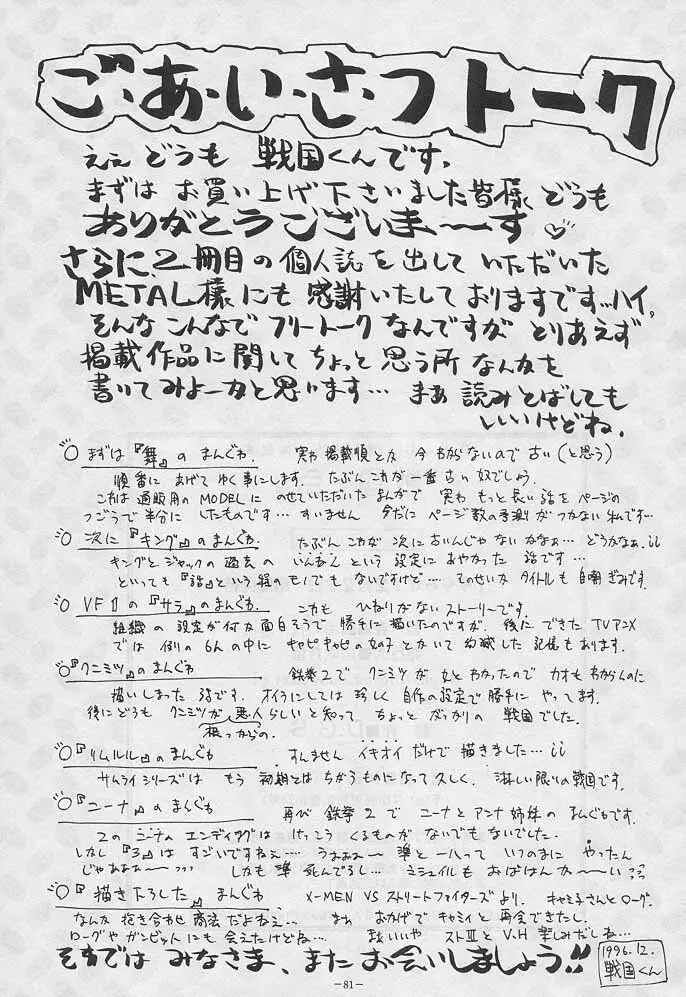 ご・あ・い・さ・つトーク
ええ どうも 戦国くんです。
まずは お買い上げ下さいました皆様 どうも
ありがとうございま〜〜す♡
さらに、2冊目の個人誌を出していただいた
METAL様にも 感謝いたしておりますです…ハイ。
そんなこんなで フリートーク なんですが とりあえず
掲載作品に関して ちょっと 思う所なんかを
書いてみよーかと思います… まぁ 読みとばしても
いいけどね。
○ まずは『舞』の まんぐわ. 実わ 掲載順とか 今 わからないので 古い(と思う)
順番に あげてゆく事にします. たぶん これが 一番 古い 奴でしょう.
これは 通販用の MODELに のせていただいた まんがで 実わ もっと長い 話を ページの
つごうで 半分に したものです… すいません 今だに ページ数の予測が つかない 私です…
○ 次に『キング』のまんぐわ. たぶん これが 次に 古いんじゃないかなぁ… どうかなぁ.ii
キングと ジャックの 過去の いんねん という 設定に おやかった 話です…
といっても『話』という程の モノでも ないですけど…. そのせいか タイトルも 自嘲ぎみです.
○ VFⅡの『サラ』のまんぐわ. これも ひねりがない ストーリーです.
組織の 設定が 何か 面白そうで 勝手に 描いたのですが. 後に できた TVアニメ
では 例の 6人の 中に キャピキャピの 女の子 とかいて 幻滅した 記憶も あります.
○『クニミツ』のまんぐわ 鉄拳2で クニミツが 女と わかったので カオも わからんのに
描いしまった 話です. オイラにしては 珍しく 自作の設定で 勝手に やってます.
後に どうも クニミツが 悪人らしいと知って ちょっと がっかりの 戦国でした.
根っからの.
○『リムルル』のまんぐわ すんません イキオイだけで 描きました…ii
サムライシリーズは もう 初期とは ちがうものになって 久しく. 淋しい限りの戦国です.
○『ニーナ』の まんぐわ 再び 鉄拳2で ニーナと アンナ 姉妹の まんぐわです.
2の ニーナ エンディングは けっこう くるものが ないでもないでした.
しかし『3』は すごいですねぇ… うぉぉぉ〜 準と 一八って いつのまに やったん
じゃあぁぁ〜??? しかも 準 死んでるし… ミシェイルも おばはんか〜〜い??
○『描き下ろした』まんぐわ X-MEN VS ストリートファイターズより. キャミ子さんと ローグ.
なんか 抱き合わせ 商法だよねえ… まぁ おかげで キャミィと 再会できたし.
ローグや ガンビットにも 会えたけどね… まぁいいや ストⅢと V・H 楽しみだしね…
それでは みなさま、また お会いしましょう!!
1996.12.
戦国くん
－81－